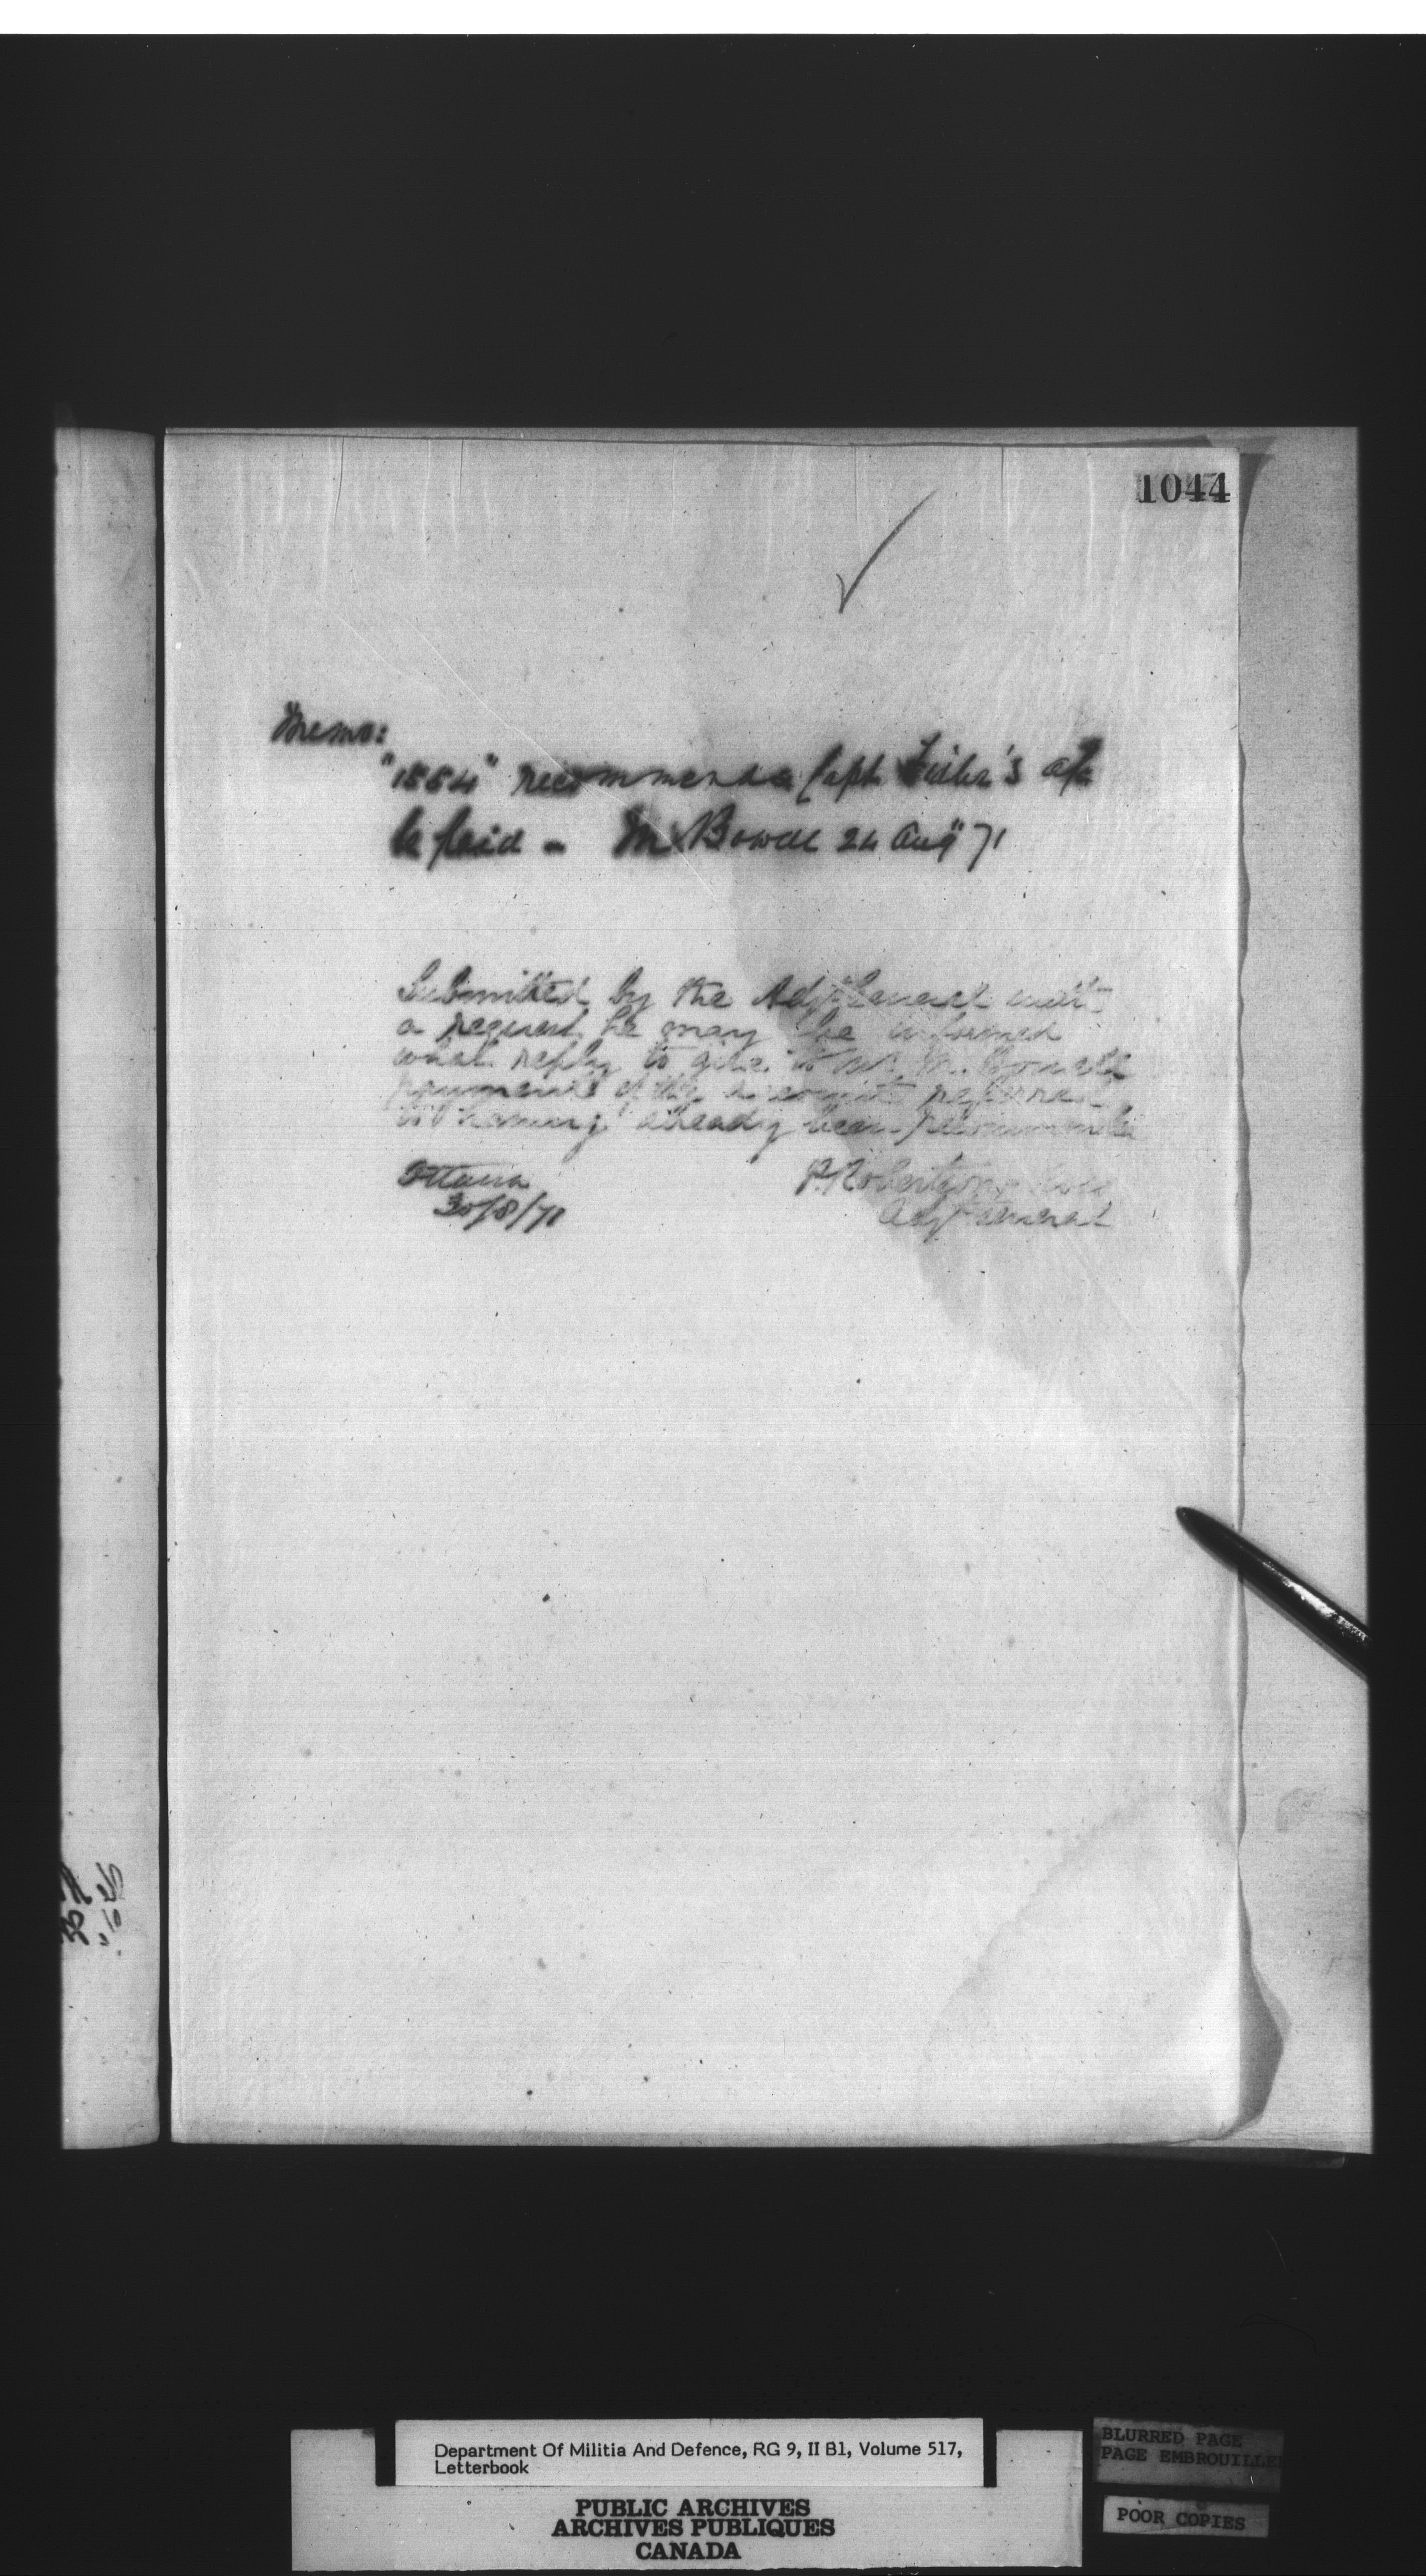 1044
Memo:
"1554" recommends Capt 's a/c
be paid - M Bowell 24 Aug 71
Submitted by the Adjt General with
a request he may be informed
what reply to give to Mr M. Bowell
payment of the account referred
to having already been recommended
Ottawa
30/8/71
P. Robertson Ross
Adjt General
Department Of Militia And Defence, RG 9, II B1, Volume 517,
Letterbook
PUBLIC ARCHIVES
ARCHIVES PUBLIQUES
CANADA
BLURRED PAGE
PAGE EMBROUILLE
POOR COPIES